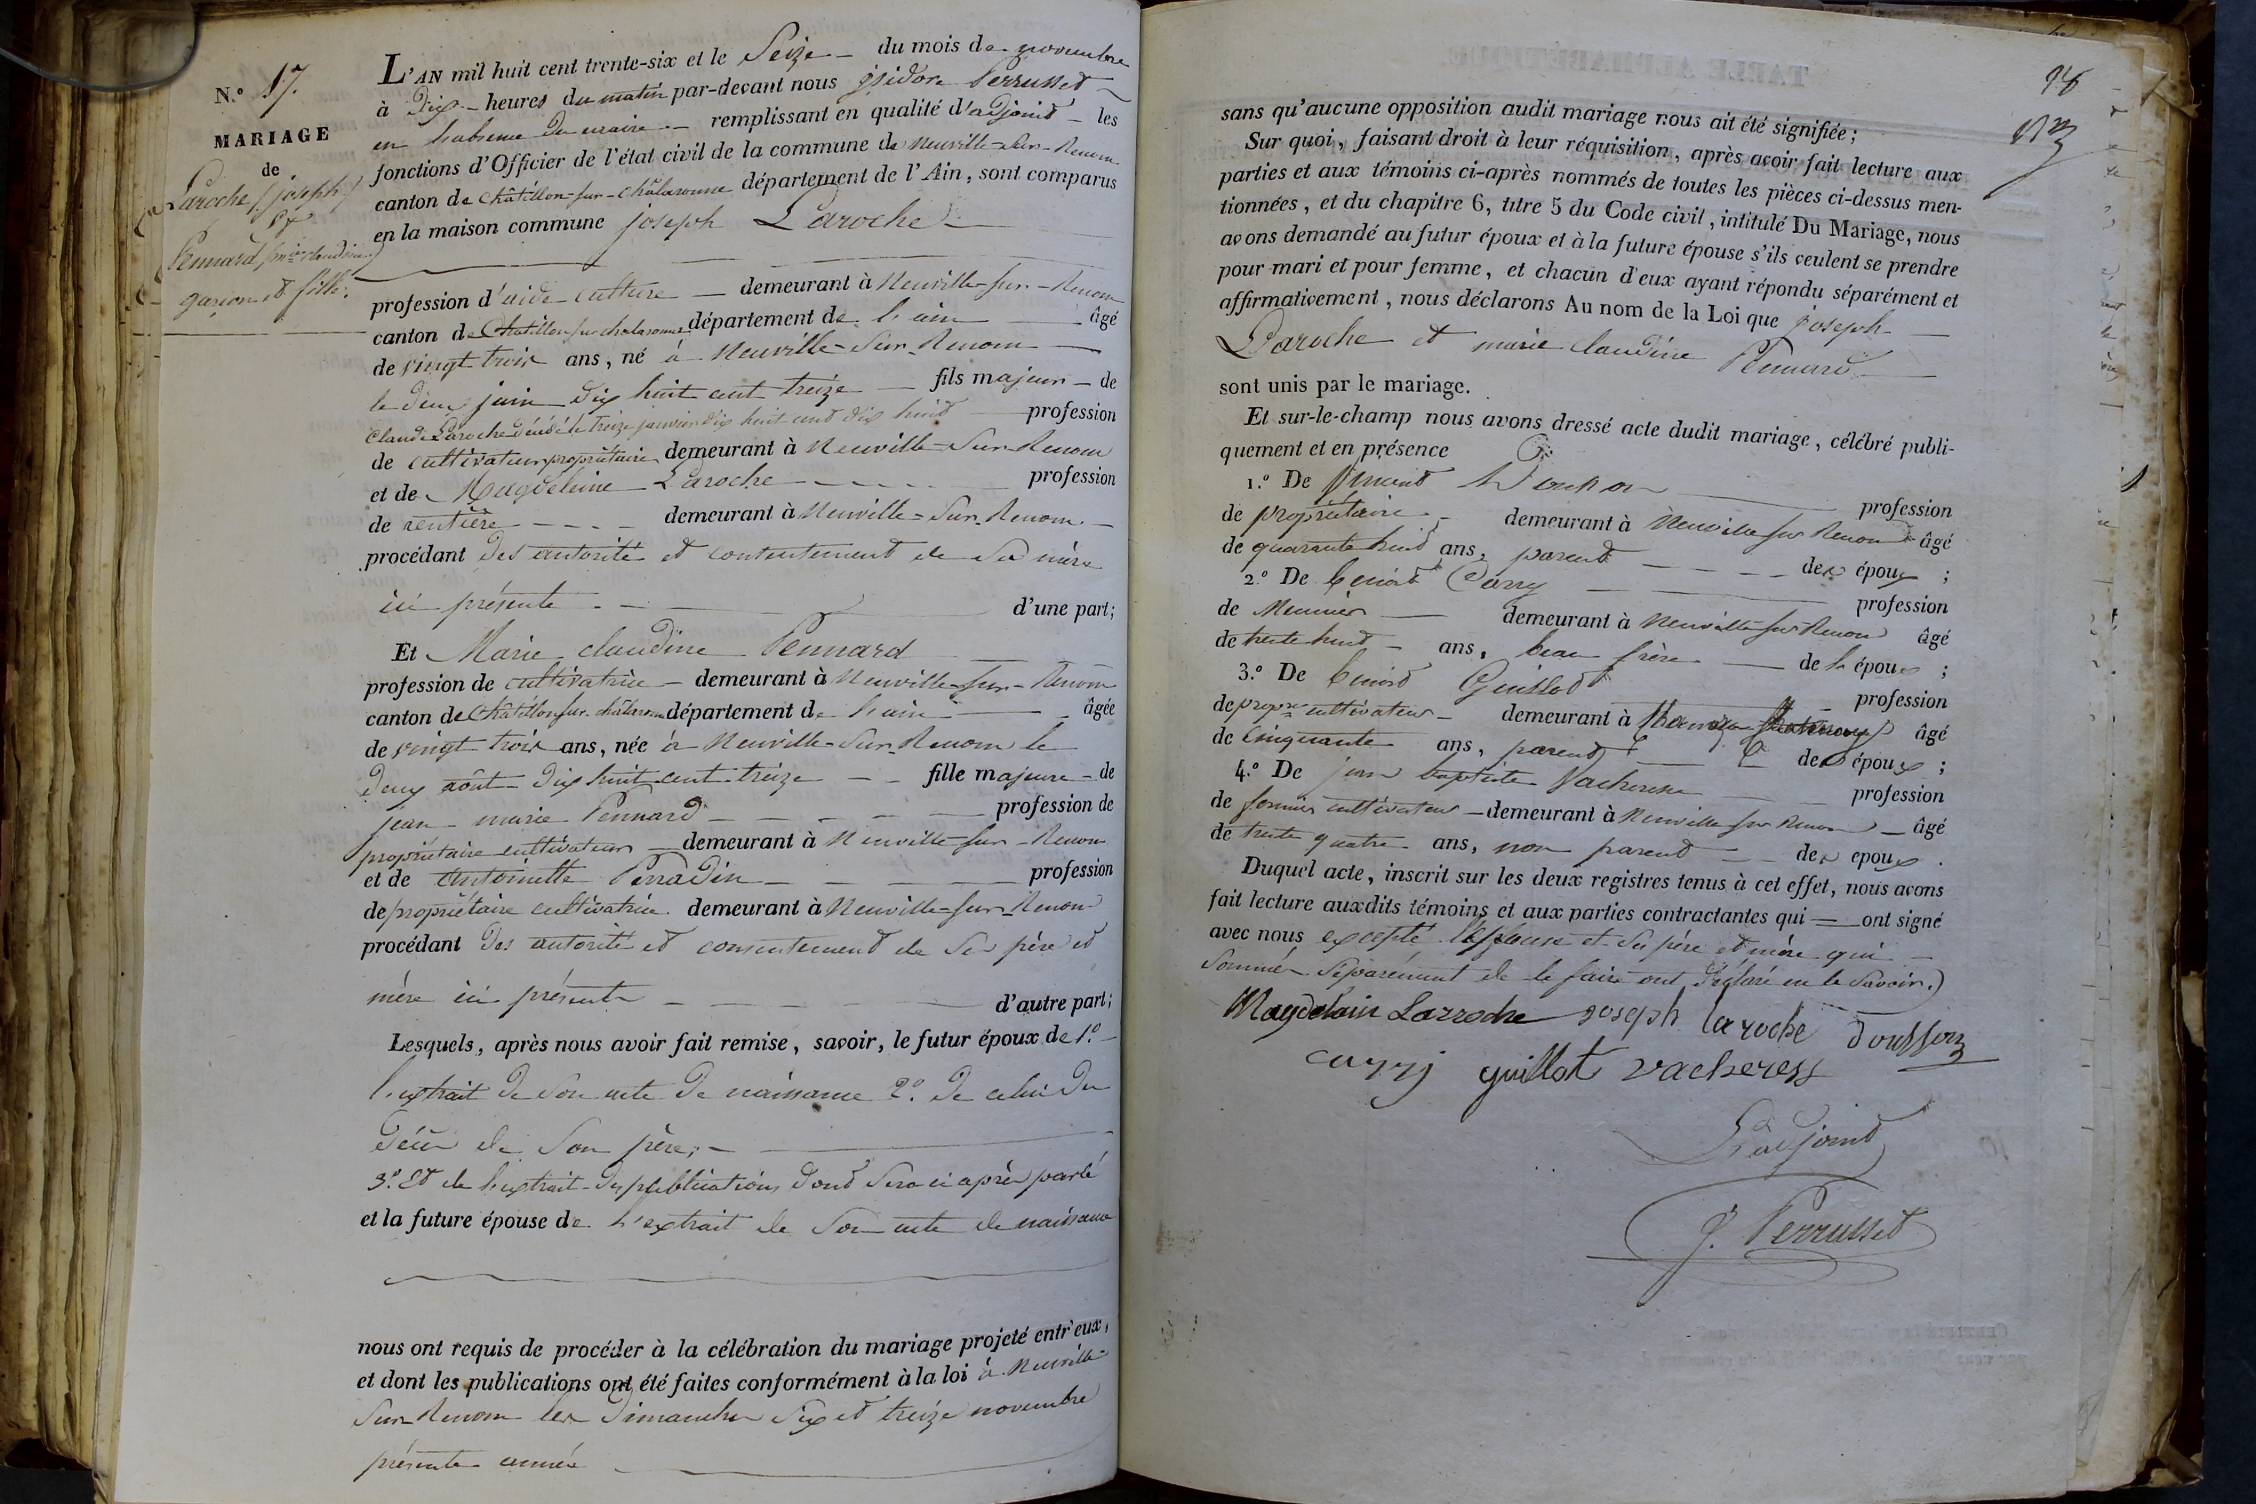 N.° 17.
MARIAGE
de
Laroche (joseph)
&
Pennard (m.ie claudine)
garçon et fille.
L'AN mil huit cent trente-six et le Seize du mois de novembre
à Dix heures du matin par-devant nous isidore Perrusset
en l'absence du maire remplissant en qualité d'adjoint les
fonctions d'Officier de l'état civil de la commune de Neuville-sur-Renom
canton de Châtillon-sur-Chalaronne département de l'Ain, sont comparus
en la maison commune joseph Laroche
profession d'aide-culture demeurant à Neuville-sur-Renom
canton de Chatillon sur chalaronne département de l'ain âgé
de vingt trois ans, né à Neuville-Sur-Renom
le deux juin dix huit cent treize fils majeur de
Claude Laroche décédé le treize janvier dix huit cent dix huit profession
de cultivateur propriétaire demeurant à Neuville-Sur-Renom
et de Magdeleine Laroche profession
de rentière demeurant à Neuville-Sur-Renom
procédant des autorité et contentement de sa mère
ici présente d'une part;
Et Marie claudine Pennard
profession de cultivatrice demeurant à Neuville-sur-Renom
canton de Châtillon sur chalaronne département de l'ain âgée
de vingt trois ans, née à Neuville-Sur-Renom le
deux août dix huit cent treize fille majeure de
jean marie Pennard profession de
propriétaire cultivateur demeurant à Neuville-sur-Renom
et de Antoinette Perradin profession
de propriétaire cultivatrice demeurant à Neuville-sur-Renom
procédant des autorité et consentement de ses père et
mère ici présents d'autre part;
Lesquels, après nous avoir fait remise, savoir, le futur époux de 1.°
l'extrait de son acte de naissance 2.° de celui du
décès de son père,
3.° Et de l'extrait des publications dont sera ci après parlé
et la future épouse de l'extrait de son acte de naissance
nous ont requis de procéder à la célébration du mariage projeté entr'eux,
et dont les publications ont été faites conformément à la loi à Neuville
Sur Renom les Dimanches six et treize novembre
présente année
sans qu'aucune opposition audit mariage nous ait été signifiée;
Sur quoi, faisant droit à leur réquisition, après avoir fait lecture aux
parties et aux témoins ci-après nommés de toutes les pièces ci-dessus men-
tionnées, et du chapitre 6, titre 5 du Code civil, intitulé Du Mariage, nous
avons demandé au futur époux et à la future épouse s'ils veulent se prendre
pour mari et pour femme, et chacun d'eux ayant répondu séparément et
affirmativement, nous déclarons Au nom de la Loi que joseph
Laroche et marie claudine Pennard
sont unis par le mariage.
Et sur-le-champ nous avons dressé acte dudit mariage, célébré publi-
quement et en présence
1.° De Vincent profession
de propriétaire demeurant à Neuville sur Renom âgé
de quarante huit ans, parent des époux ;
2.° De benoit Carry profession
de Meunier demeurant à Neuville sur Renom âgé
de trente huit ans, beau frère de l'époux ;
3.° De benoit Guillot profession
de prop.re cultivateur demeurant à âgé
de cinquante ans, parent des époux ;
4.° De jean baptiste Vacheresse profession
de fermier cultivateur demeurant à Neuville sur Renom âgé
de trente quatre ans, non parent des époux .
Duquel acte, inscrit sur les deux registres tenus à cet effet, nous avons
fait lecture auxdits témoins et aux parties contractantes qui ont signé
avec nous excepté l'épouse et ses père et mère qui
sommés séparément de le faire ont déclaré ne le savoir.)
Magdelain Larroche joseph laroche Dousson
carry guillot vacheress
L'adjoint
J. Perrusset